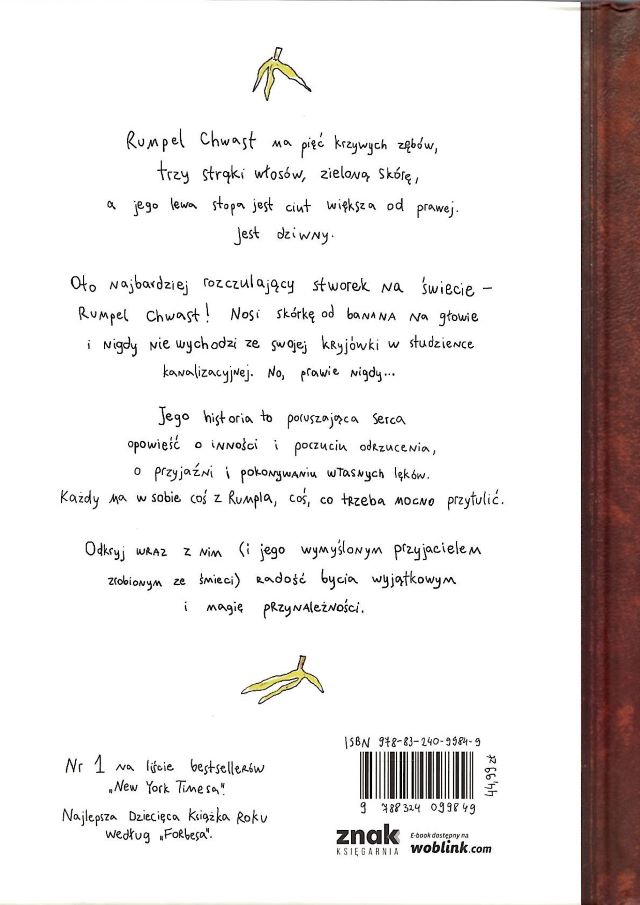 Rumpel Chwast ma pięć krzywych zębów,
trzy strąki włosów, zieloną skórę,
a jego lewa stopa jest ciut większa od prawej.
Jest dziwny.
Oto najbardziej rozczulający stworek na świecie –
Rumpel Chwast! Nosi skórkę od banana na głowie
i nigdy nie wychodzi ze swojej kryjówki w studzience
kanalizacyjnej. No, prawie nigdy...
Jego historia to poruszająca serca
opowieść o inności i poczuciu odrzucenia,
o przyjaźni i pokonywaniu własnych lęków.
Każdy ma w sobie coś z Rumpla, coś, co trzeba mocno przytulić.
Odkryj wraz z nim (i jego wymyślonym przyjacielem
zrobionym ze śmieci) radość bycia wyjątkowym
i magię przynależności.
Nr 1 na liście bestsellerów
„New York Timesa".
Najlepsza Dziecięca Książka Roku
według „Forbesa".
ISBN 978-83-240-9984-9
9 788324 099849
44,99 zł
znak
KSIĘGARNIA
E-book dostępny na
woblink.com